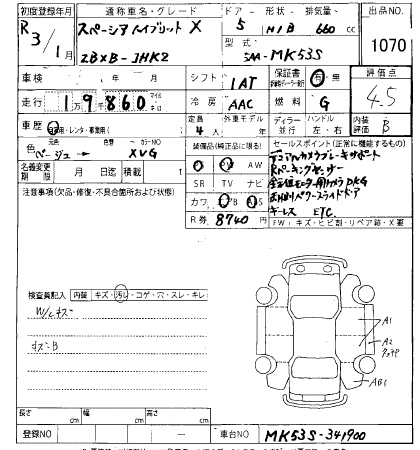 初度登録年月 通称車名・グレード ドア 形状 排気量 出品NO.
R3/1月 スペーシアハイブリット X 5 H/B 660 cc 1070
2BXB-JHK2 型式 5AA-MK53S
車検 年 月 シフト IAT 保証書 有・無 評価点
走行 19860 冷房 AAC 燃料 G 4.5
車歴 自家用・レンタ・事業用( ) 定員 4人 外車モデル ディーラー 並行 ハンドル 左・右 内装評価 B
色 元色 ベージュ → 色替 カラーNO XVG 装備品(純正品に限る) セールスポイント(正常に機能するもの)
名義変更期限 月 日迄 積載 t AW デュアルカメラブレーキサポート
注意事項(欠品・修復・不具合箇所および状態) SR TV ナビ Rパーキングセンサー
カワ 全方位モニター用カメラPKG
R券 8740円 両側Rパワースライドドア
キーレス ETC
FW:キズ・ヒビ割・リペア跡・X要
検査員記入 内装 キズ・汚レ・コゲ・穴・スレ・キレ
W/Lキズ A1
キズ・B A2
AB1
長さ cm 幅 cm 高さ cm
登録NO ― 車台NO MK53S-341900